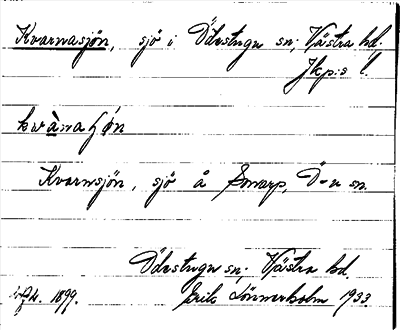 Kvarnasjön, sjö i Ödestugu sn; Västra hd.
Jkp:s l.
kvànaʃón
Kvarnsjön, sjö å Smarp, Ö-u sn.
Ödestugu sn; Västra hd
1899. Erik Lönnerholm 1933.